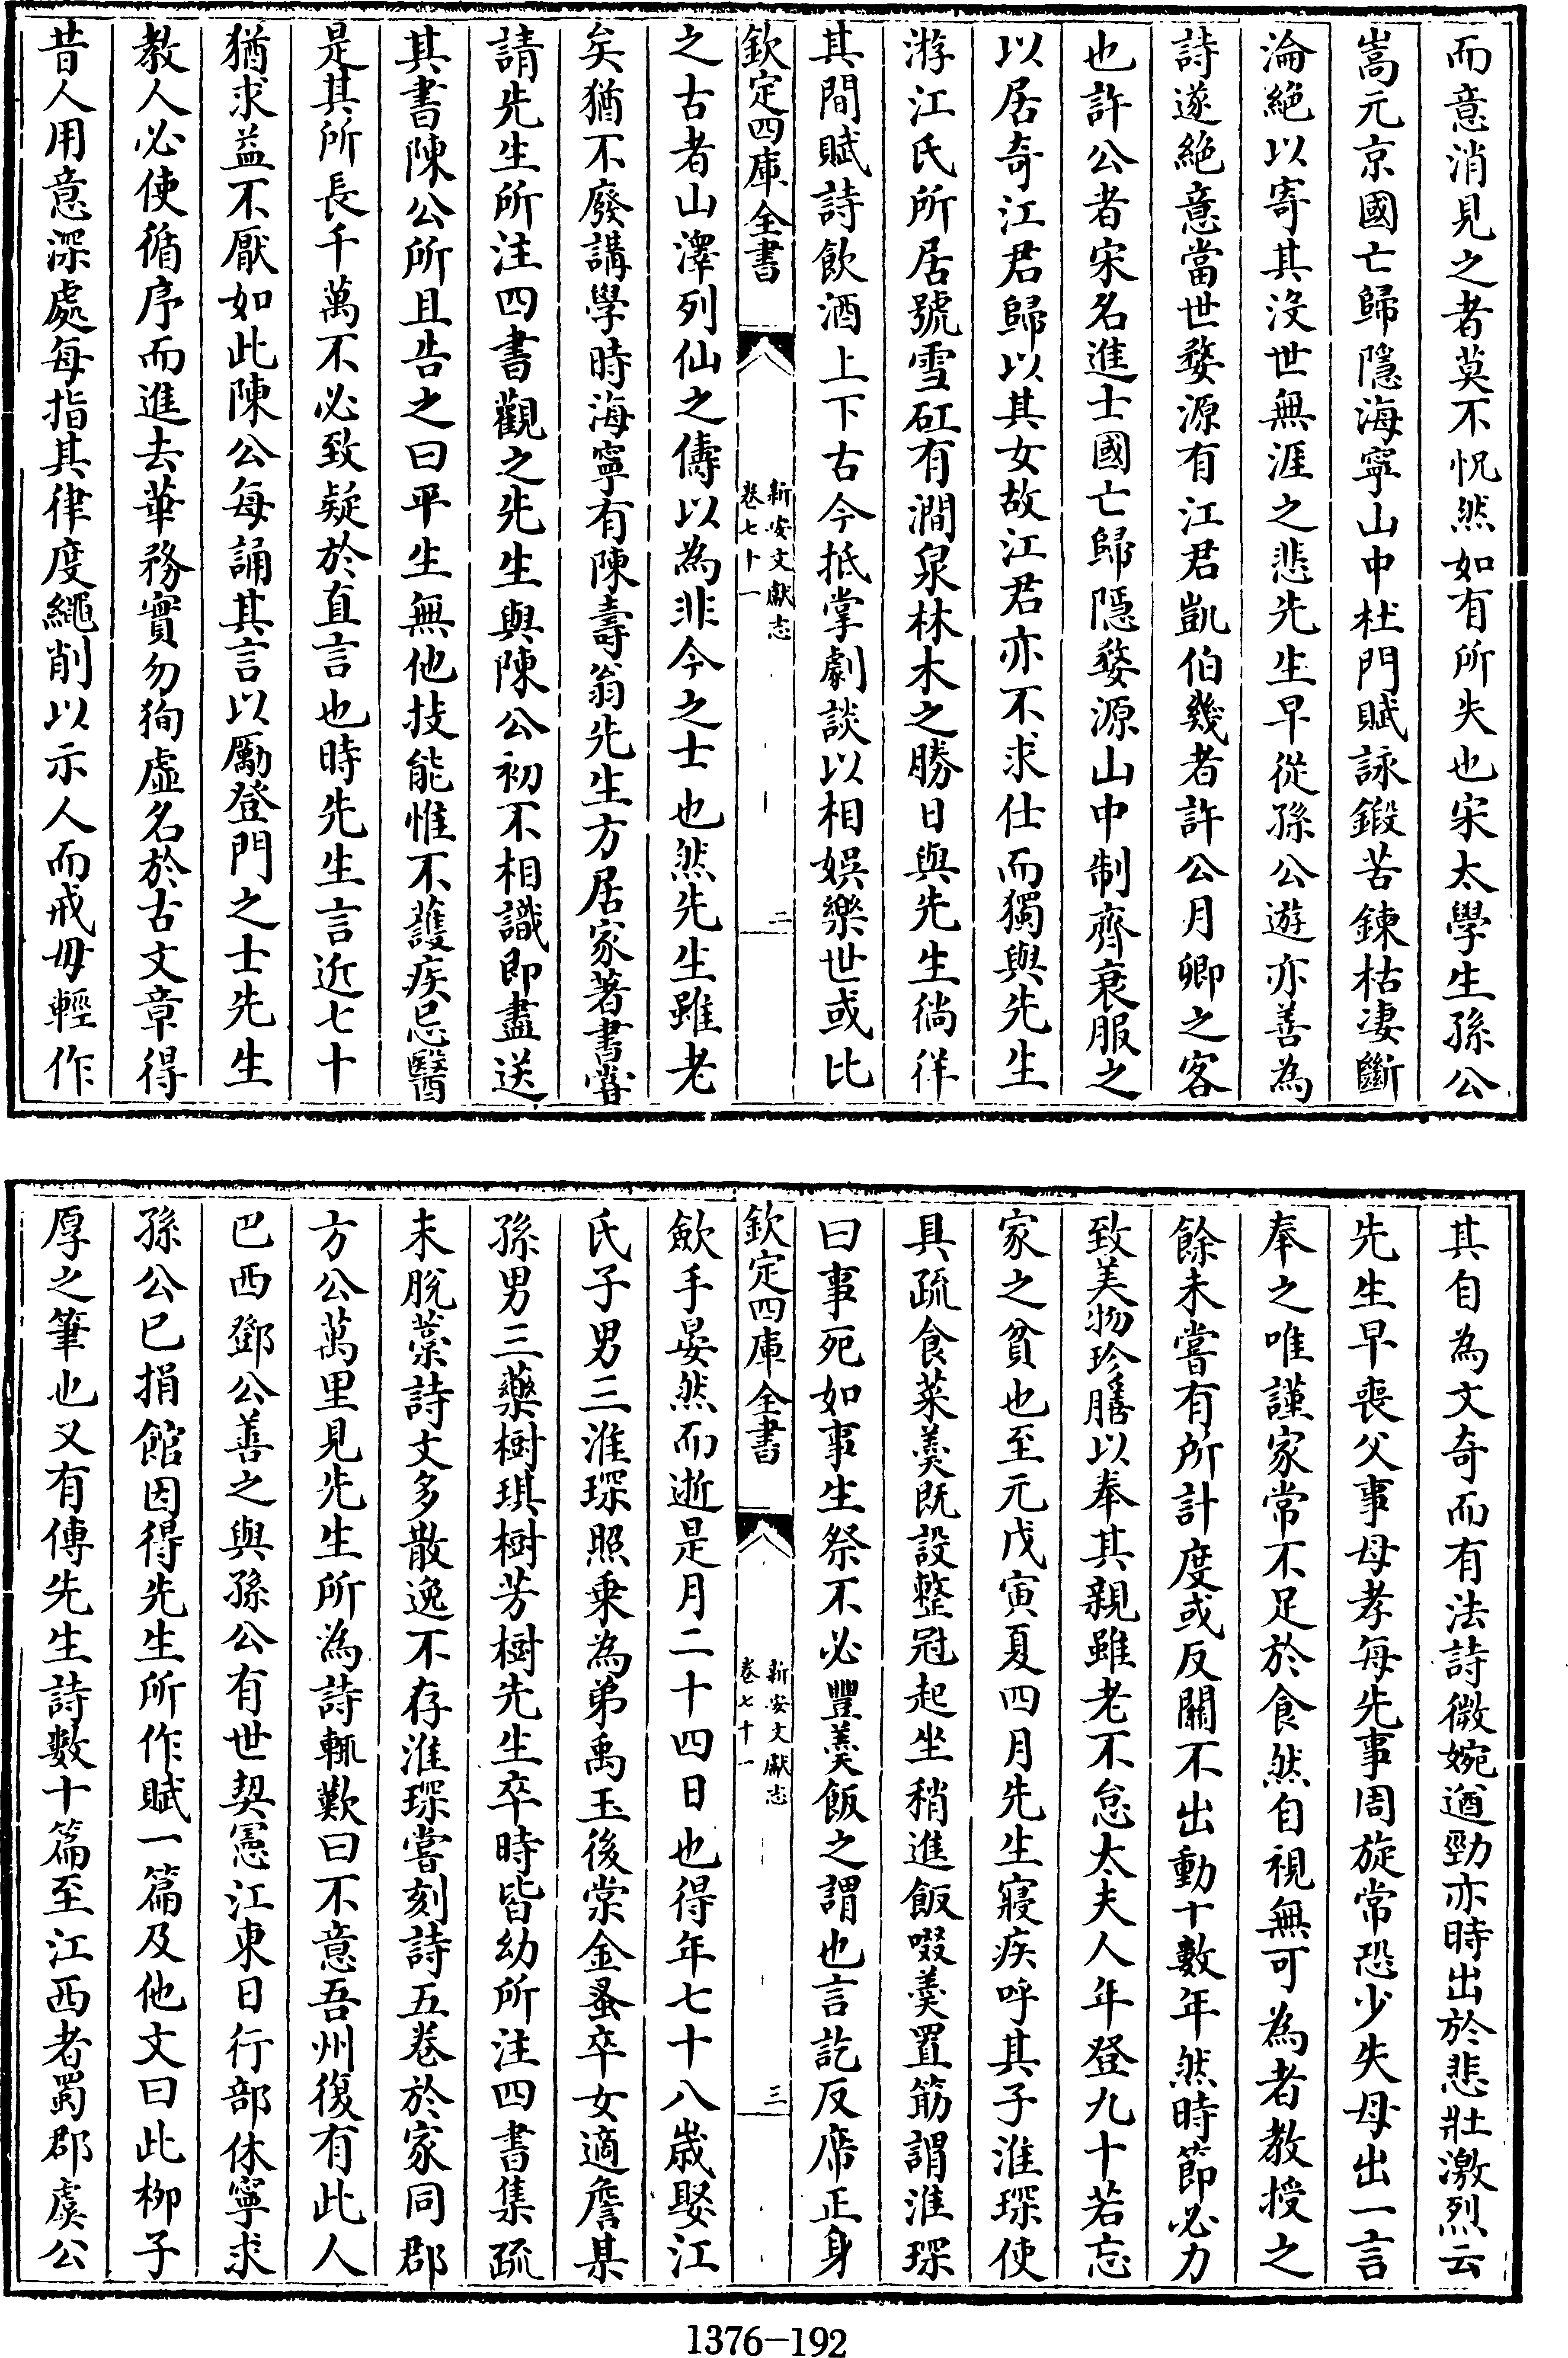 而意消見之者莫不怳然如有所失也宋太學生孫公
嵩元京國亡歸隱海寧山中杜門賦詠鍛苦鍊枯凄斷
淪絕以寄其沒世無涯之悲先生早從孫公遊亦善為
詩遂絕意當世婺源有江君凱伯幾者許公月卿之客
也許公者宋名進士國亡歸隱婺源山中制齊衰服之
以居奇江君歸以其女故江君亦不求仕而獨與先生
游江氏所居號雪矼有澗泉林木之勝日與先生徜徉
其間賦詩飲酒上下古今抵掌劇談以相娛樂世或比
欽定四庫全書
新安文獻志
卷七十一
二
之古者山澤列仙之儔以為非今之士也然先生雖老
矣猶不廢講學時海寧有陳壽翁先生方居家著書嘗
請先生所注四書觀之先生與陳公初不相識即盡送
其書陳公所且告之曰平生無他技能惟不護疾忌醫
是其所長千萬不必致疑於直言也時先生言近七十
猶求益不厭如此陳公每誦其言以勵登門之士先生
教人必使循序而進去華務實勿狥虛名於古文章得
昔人用意深處每指其律度繩削以示人而戒毋輕作
其自為文奇而有法詩微婉遒勁亦時出於悲壯激烈云
先生早喪父事母孝每先事周旋常恐少失母出一言
奉之唯謹家常不足於食然自視無可為者教授之
餘未嘗有所計度或反關不出動十數年然時節必力
致美物珍膳以奉其親雖老不怠太夫人年登九十若忘
家之貧也至元戊寅夏四月先生寢疾呼其子淮琛使
具疏食菜羹既設整冠起坐稍進飯啜羹置筯謂淮琛
曰事死如事生祭不必豐羹飯之謂也言訖反席正身
欽定四庫全書
新安文獻志
卷七十一
三
歛手晏然而逝是月二十四日也得年七十八歲娶江
氏子男三淮琛照乘為弟禹玉後棠金蚤卒女適詹某
孫男三藥樹琪樹芳樹先生卒時皆幼所注四書集疏
未脫藁詩文多散逸不存淮琛嘗刻詩五卷於家同郡
方公萬里見先生所為詩輒歎曰不意吾州復有此人
巴西鄧公善之與孫公有世契憲江東日行部休寧求
孫公已捐館因得先生所作賦一篇及他文曰此柳子
厚之筆也又有傳先生詩數十篇至江西者蜀郡虞公
1376-192